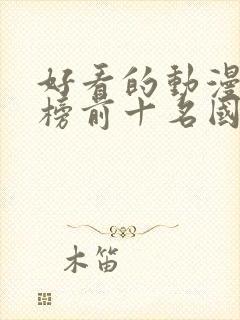 好看的動漫
榜前十名國
木笛